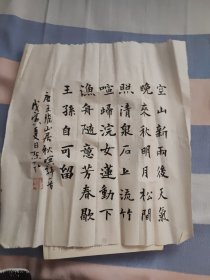 空山新雨後天氣
晚來秋明月松間
照清泉石上流竹
喧歸浣女蓮動下
漁舟隨意芳春歇
王孫自可留
唐王維山居秋暝詩
戊寅夏日